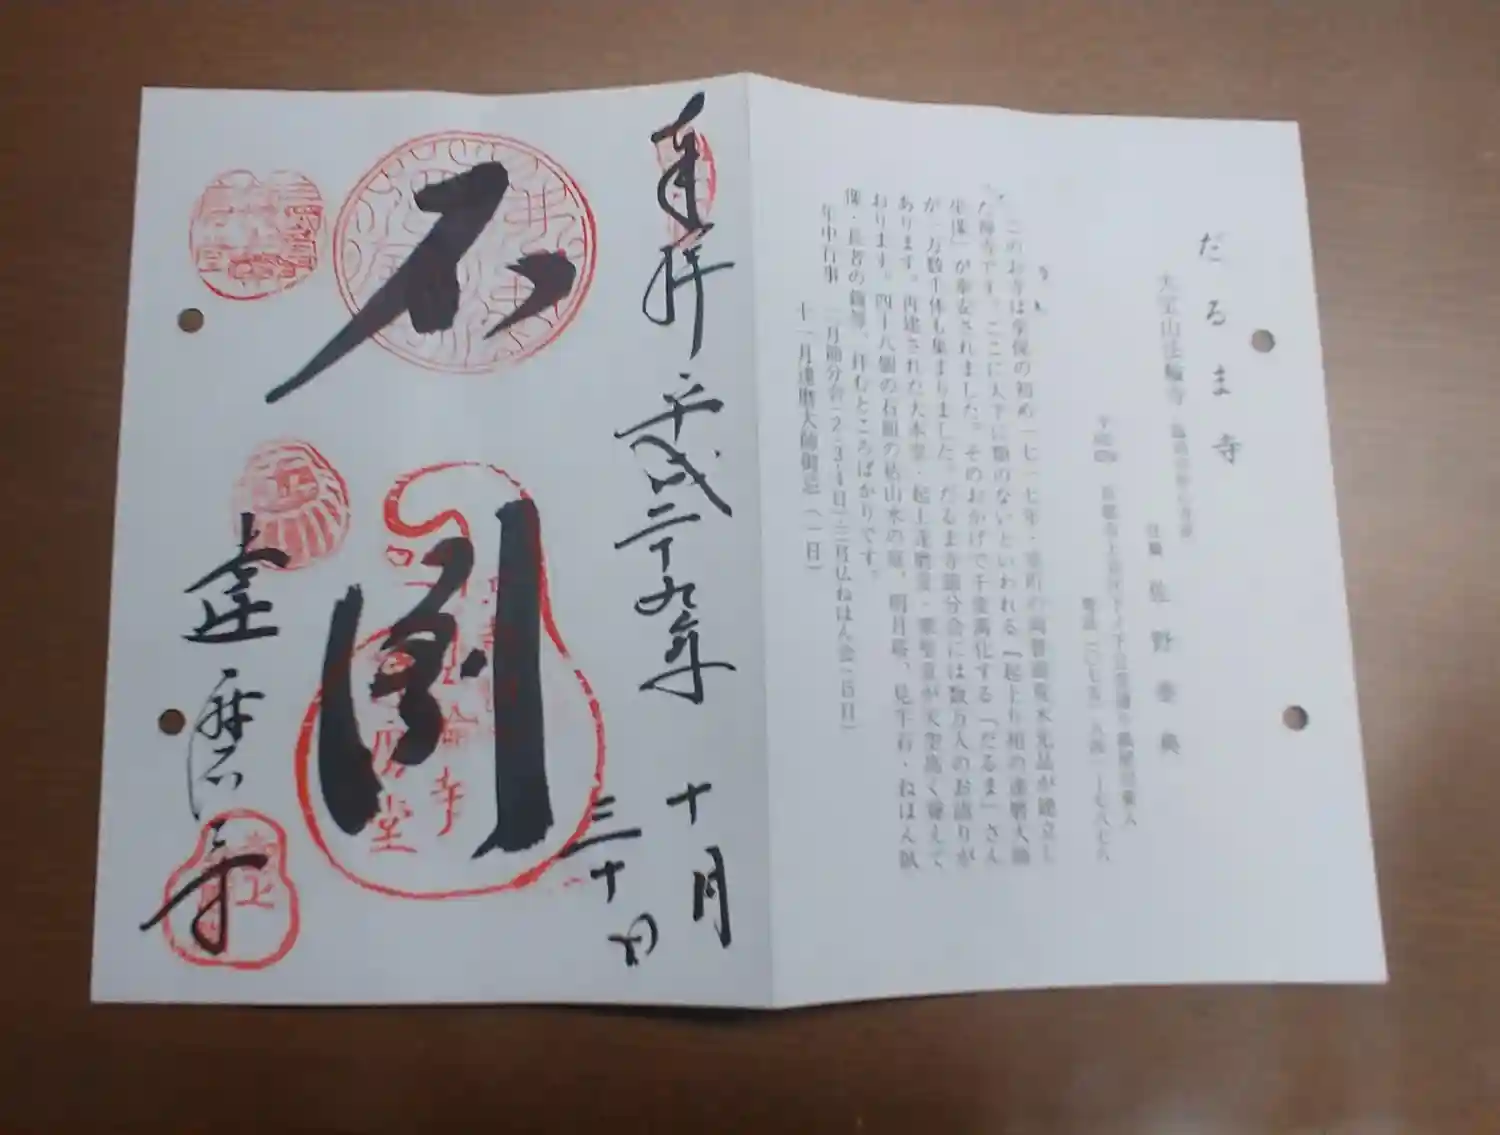 だるま寺
大宝山法輪寺
住職 佐野泰典
このお寺は享保の初め一七一七年・室町の両替商荒木光品が建立し
た禅寺です。ここに天下に類のないといわれる「起上り相の達磨大師
坐像」が奉安されました。そのおかげで千変萬化する「だるま」さん
が一万数千体も集まりました。だるま寺節分会には数万人のお詣りが
あります。再建された大本堂・起上達磨堂・衆聖堂が大空高く聳えて
おります。四十八個の石組の枯山水の庭、明月塔、見牛石・ねはん臥
像・長者の鐘等、拝むところばかりです。
年中行事 二月節分会(2・3・4日)三月仏ねはん会(15日)
十一月達磨大師御忌(一日)
奉拝 平成二十九年 十月
三十日
不
倒
達磨寺